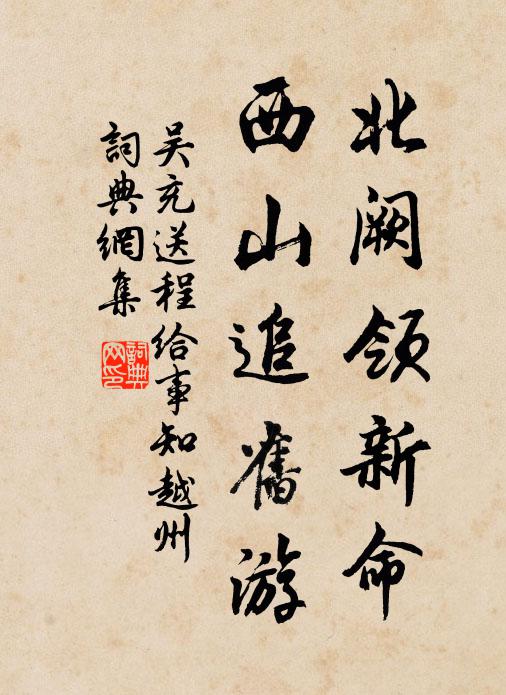 北阙领新命
西山追舊游
吴充送程给事知越州
詞典網集
詞典
网印